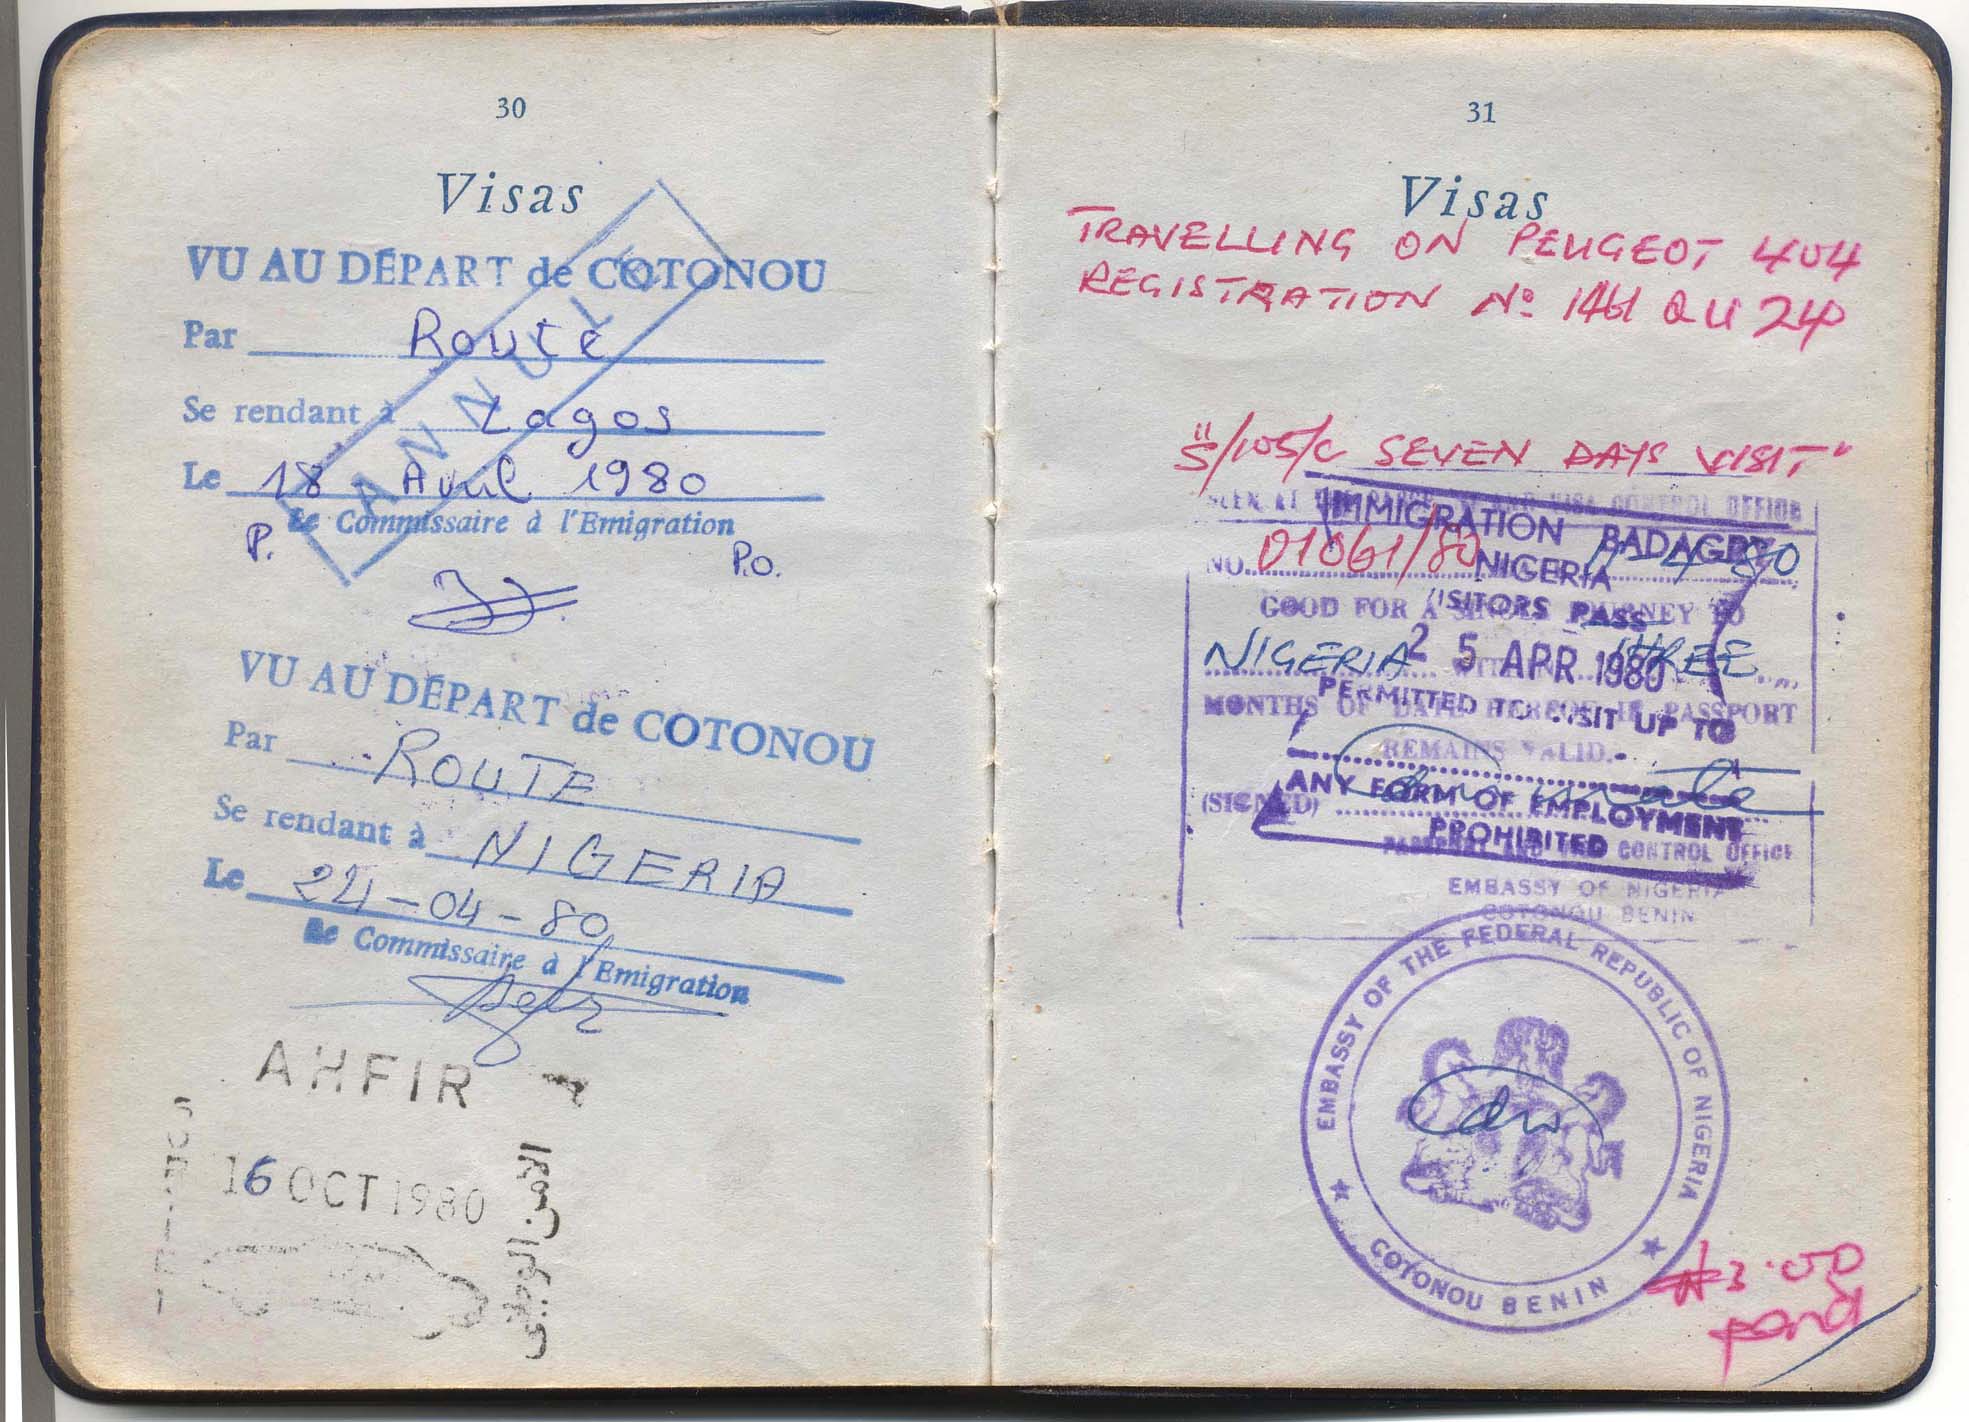 30
Visas
VU AU DÉPART de COTONOU
Par Route
Se rendant à Lagos
Le 18 Avril 1980
Le Commissaire à l'Emigration
P. P.O.
ANNULÉ
VU AU DÉPART de COTONOU
Par ROUTE
Se rendant à NIGERIA
Le 24-04-80
Le Commissaire à l'Emigration
AHFIR
16 OCT 1980
الأمن الوطني
31
Visas
TRAVELLING ON PEUGEOT 404
REGISTRATION No 1461 QU 24
"S/105/C SEVEN DAYS VISIT"
SEEN AT AND VISA CONTROL OFFICE
NO. 01061/80
GOOD FOR A SINGLE JOURNEY TO
NIGERIA WITHIN THREE
MONTHS OF DATE HEREOF IF PASSPORT
REMAINS VALID.-
(SIGNED)
PASSPORT AND CONTROL OFFICE
EMBASSY OF NIGERIA
COTONOU BENIN
IMMIGRATION BADAGRY
NIGERIA
VISITORS PASS
25 APR 1980
PERMITTED TO VISIT UP TO
ANY FORM OF EMPLOYMENT
PROHIBITED
EMBASSY OF THE FEDERAL REPUBLIC OF NIGERIA
COTONOU BENIN
₦3.00
paid